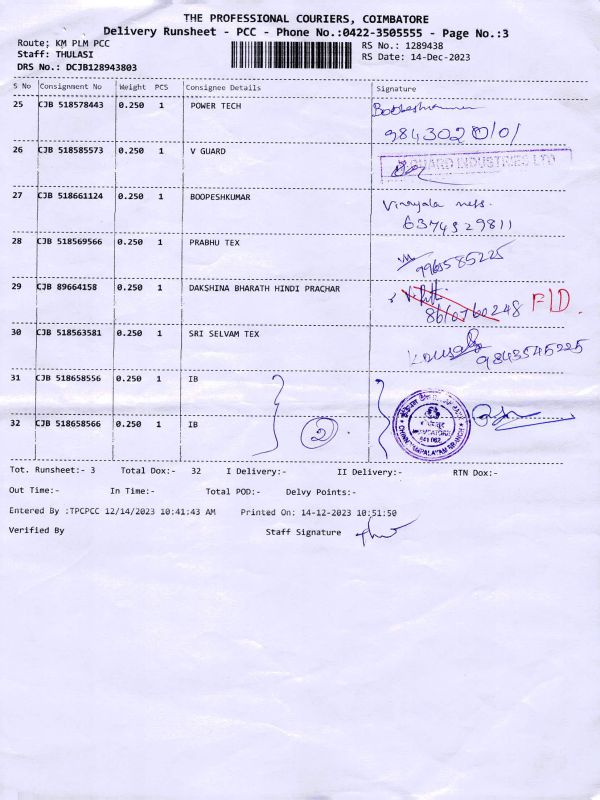 THE PROFESSIONAL COURIERS, COIMBATORE
Delivery Runsheet - PCC - Phone No.:0422-3505555 - Page No.:3
Route; KM PLM PCC
Staff: THULASI
DRS No.: DCJB128943803
RS No.: 1289438
RS Date: 14-Dec-2023
S No Consignment No Weight PCS Consignee Details Signature
25 CJB 518578443 0.250 1 POWER TECH Boobeshkumar
98430280101
26 CJB 518585573 0.250 1 V GUARD V GUARD INDUSTRIES LTD
27 CJB 518661124 0.250 1 BOOPESHKUMAR Vinayala mess.
6374529811
28 CJB 518569566 0.250 1 PRABHU TEX
9965585225
29 CJB 89664158 0.250 1 DAKSHINA BHARATH HINDI PRACHAR
8610760248 F/D.
30 CJB 518563581 0.250 1 SRI SELVAM TEX
9843545225
31 CJB 518658556 0.250 1 IB
32 CJB 518658566 0.250 1 IB 2
COIMBATORE
641 062
CHINNIYAMPALAYAM BRANCH
Tot. Runsheet:- 3 Total Dox:- 32 I Delivery:- II Delivery:- RTN Dox:-
Out Time:- In Time:- Total POD:- Delvy Points:-
Entered By :TPCPCC 12/14/2023 10:41:43 AM Printed On: 14-12-2023 10:51:50
Verified By Staff Signature